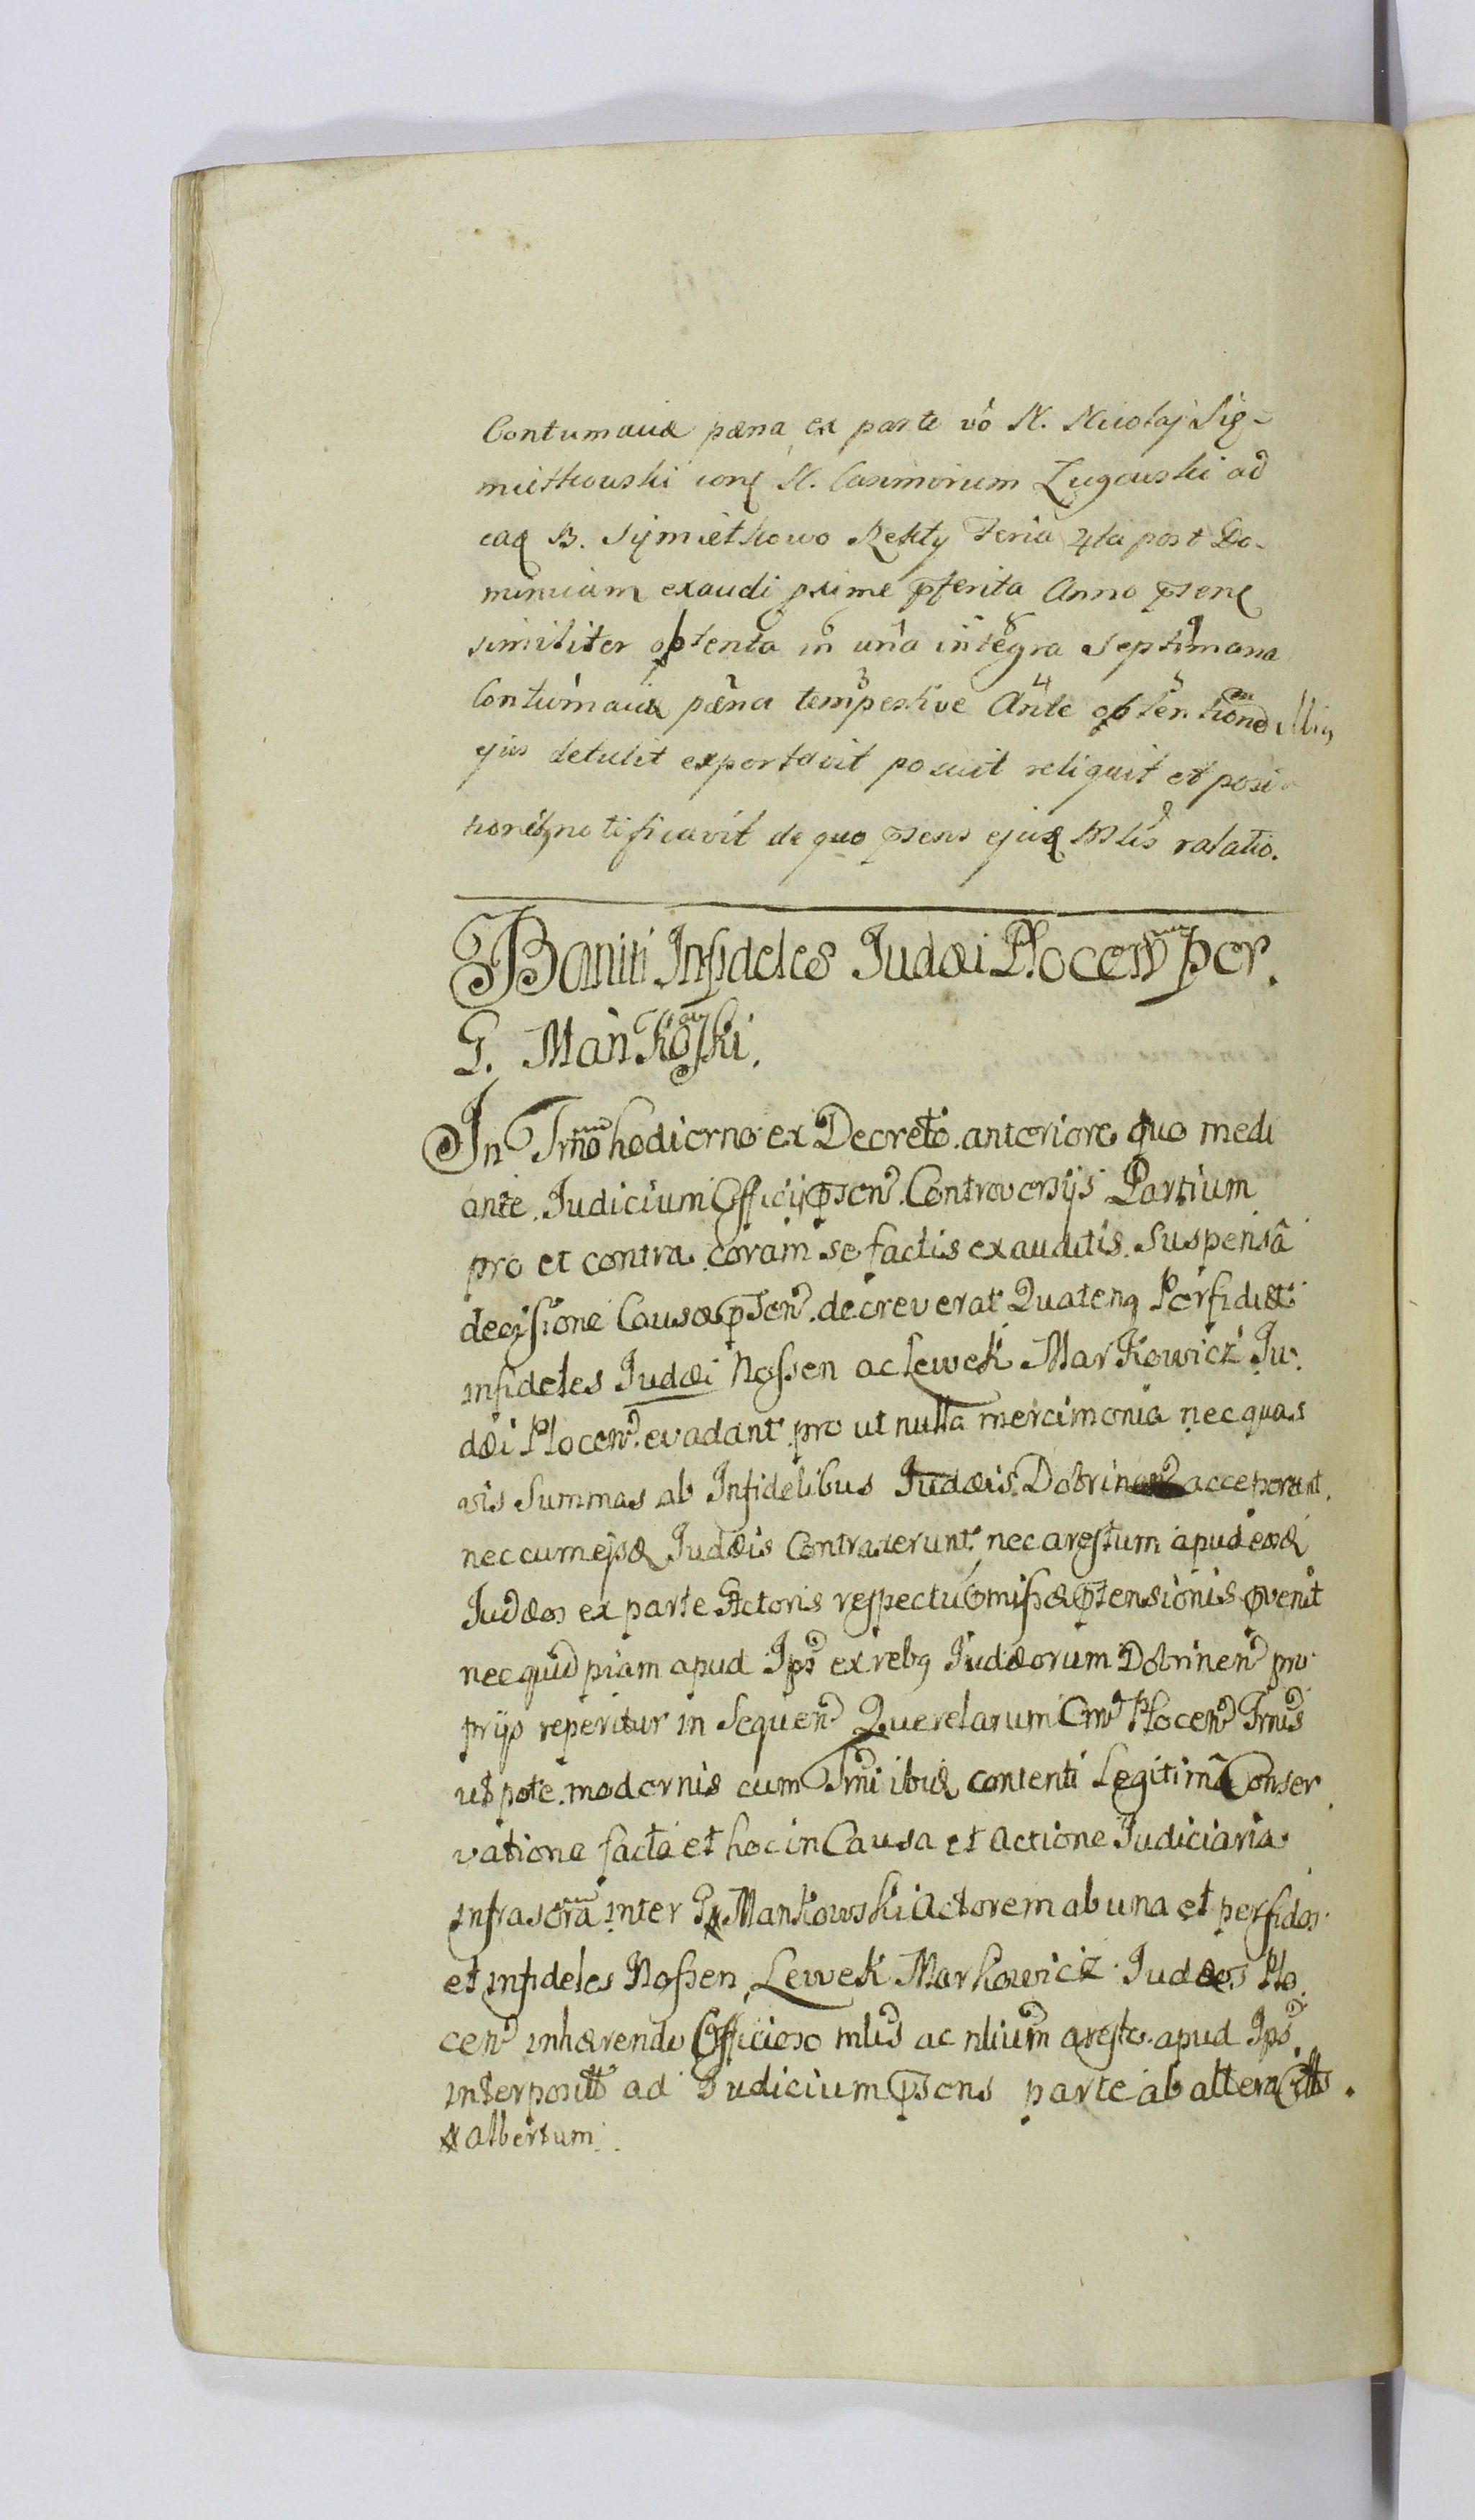 Contumaciæ pæna ex parte vo N. Nicolaj Sig-
mietkowski conq N. Casimirum Zugowski ad
eaq B. Sijmietkowo Rekty Feria 4ta post Do-
minicam exaudi prime pterita Anno psenq
similiter obtenta in una integra Septimana
Contumaciæ pæna tempestive Ante obtentione illiq
ejus detulit exportavit posuit reliquit et posi-
notificavit de quo psens ejusq relatio.
Baniti Infideles Judæi Plocen per
G. Mankowski.
In Trno hodierno ex Decreto anteriore quo medi
ante Judicium Officij psen Controversijs Partium
pro et contra coram se factis exauditis Suspensâ
decisione Causæ psen decreverat Quatenq Perfidi et
infideles Judæi Nossen ac Lewek Markowicz Ju
dæi Plocen evadant pro ut nulla mercimonia nec quas
vis Summas ab Infidelibus Judæis Dobrinen acceperunt
nec cum ejsd Judæis Contraxerunt nec arestum apud eosd
Judæos ex parte Actoris respectu pmissæ ptensionis pvenit
nec quidpiam apud Ips ex rebq Judæorum Dobrinen pro
prijs reperitur in Sequen Querelarum Plocen Trnis
utpote modernis cum Trni ibiq contenti Legitimâ Conser
vatione facta et hoc in Causa et Actione Judiciaria
infrascra inter G Mankowski Actorem ab una et perfidos
et infideles Nossen Lewek Markowicz Judæos Plo
cen inhærendo Officioso mlis ac nlium aresto apud Ips
interposit ad Judicium psens parte ab altera Citts
Albertum